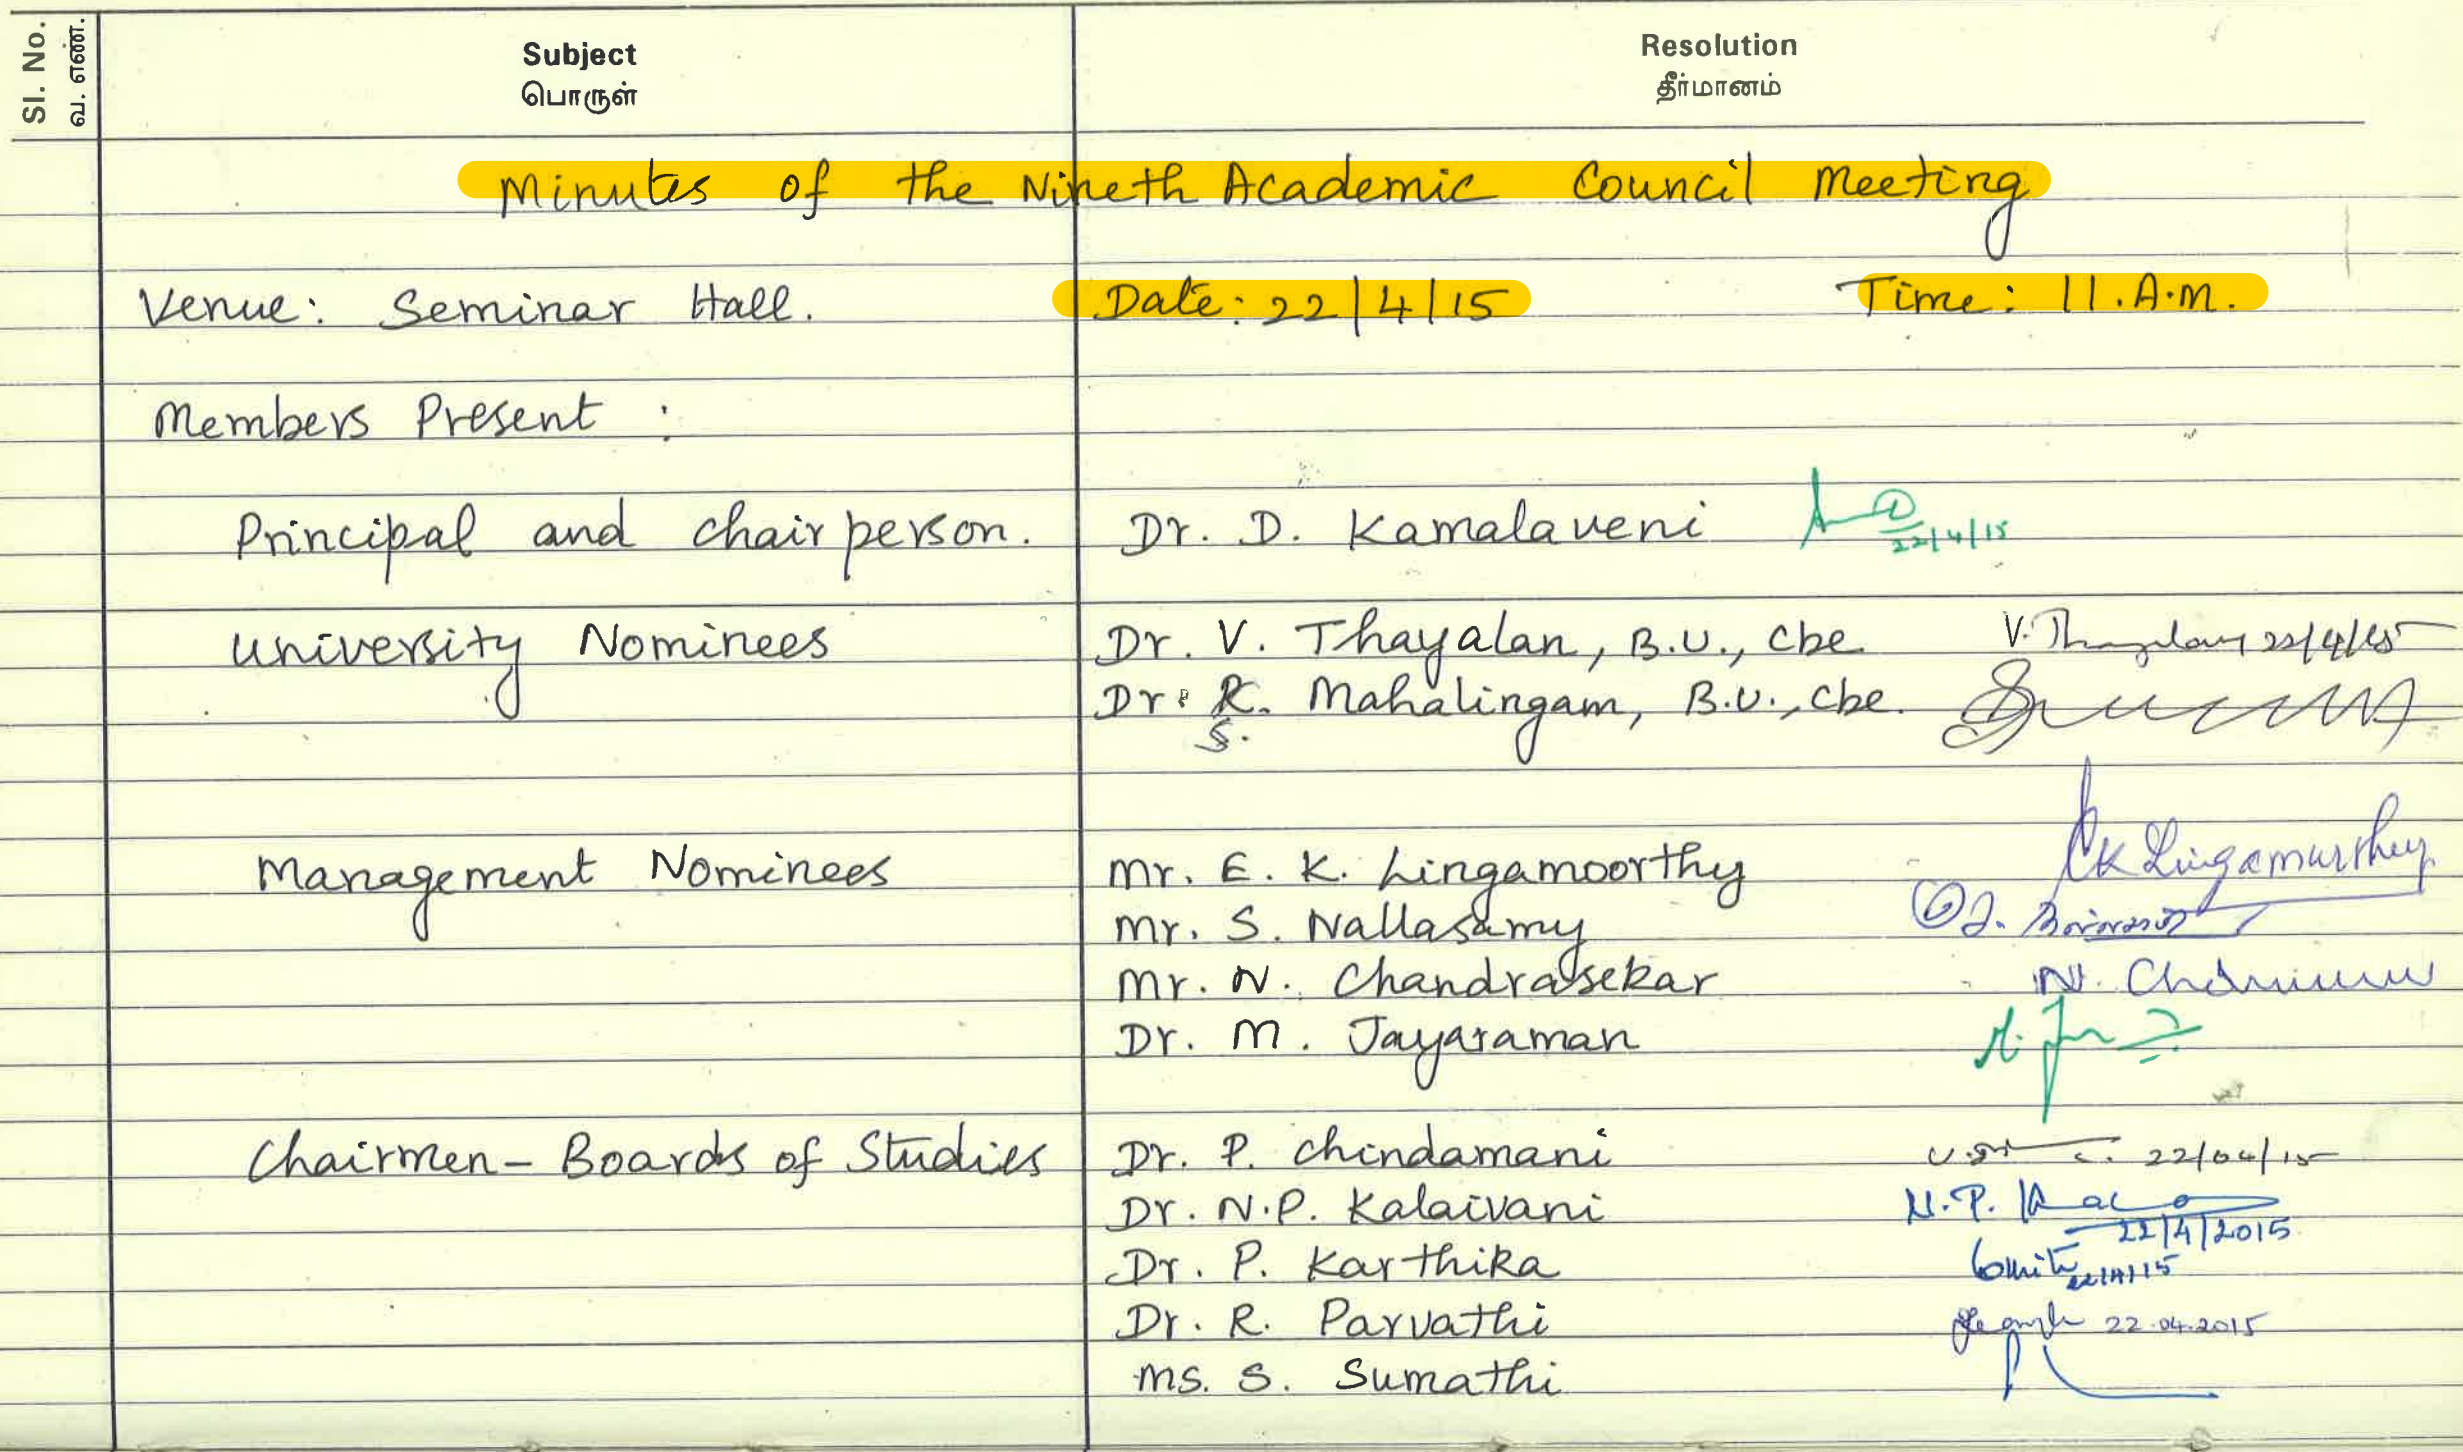 Sl. No.
வ. எண்.
Subject
பொருள்
Resolution
தீர்மானம்
Minutes of the Nineth Academic Council Meeting
Venue: Seminar Hall. Date: 22/4/15 Time: 11.A.M.
Members Present :
Principal and Chairperson. Dr. D. Kamalaveni 22/4/15
University Nominees Dr. V. Thayalan, B.U., Cbe. V. Thayalan 22/4/15
Dr. R. Mahalingam, B.U., Cbe.
S.
Management Nominees Mr. E. K. Lingamoorthy EK Lingamurthy
Mr. S. Nallasamy
Mr. N. Chandrasekar N.
Dr. M. Jayaraman
Chairmen - Boards of Studies Dr. P. Chindamani 22/04/15
Dr. N.P. Kalaivani N.P.
22/4/2015
Dr. P. Karthika 22/4/15
Dr. R. Parvathi 22.04.2015
Ms. S. Sumathi